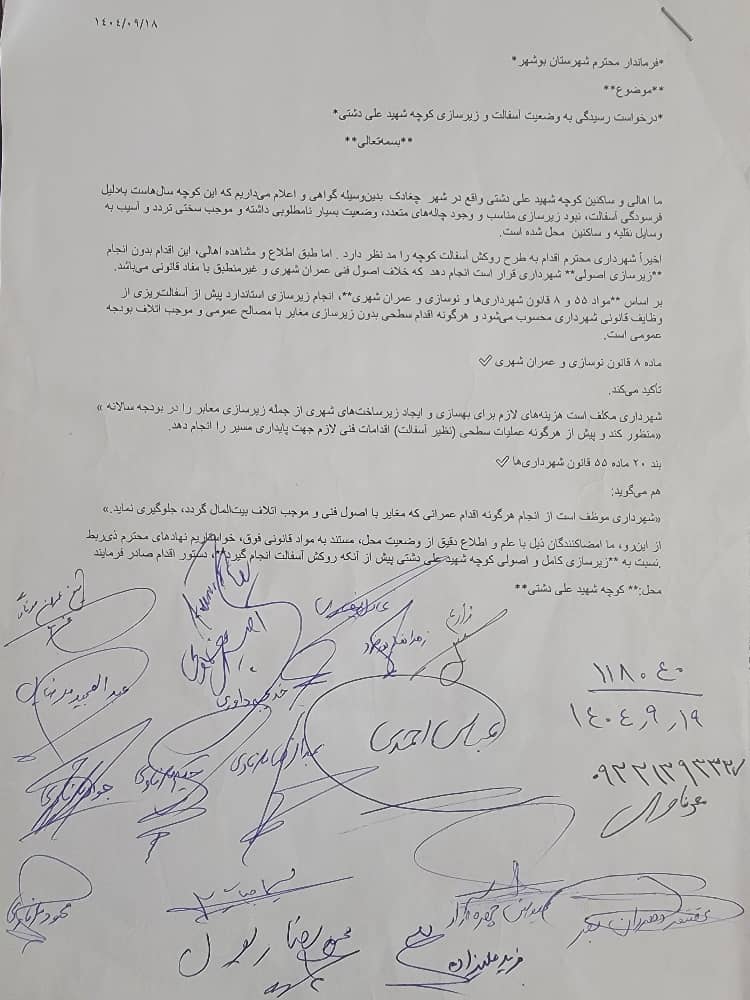 ۱٤۰٤/۰۹/۱۸
*فرماندار محترم شهرستان بوشهر*
**موضوع**
*درخواست رسیدگی به وضعیت آسفالت و زیرسازی کوچه شهید علی دشتی*
**بسمه‌تعالی**
ما اهالی و ساکنین کوچه شهید علی دشتی واقع در شهر چغادک بدین‌وسیله گواهی و اعلام می‌داریم که این کوچه سال‌هاست به‌دلیل
فرسودگی آسفالت، نبود زیرسازی مناسب و وجود چاله‌های متعدد، وضعیت بسیار نامطلوبی داشته و موجب سختی تردد و آسیب به
وسایل نقلیه و ساکنین محل شده است.
اخیراً شهرداری محترم اقدام به طرح روکش آسفالت کوچه را مد نظر دارد . اما طبق اطلاع و مشاهده اهالی، این اقدام بدون انجام
**زیرسازی اصولی** شهرداری قرار است انجام دهد که خلاف اصول فنی عمران شهری و غیرمنطبق با مفاد قانونی می‌باشد.
بر اساس **مواد ۵۵ و ۸ قانون شهرداری‌ها و نوسازی و عمران شهری**، انجام زیرسازی استاندارد پیش از آسفالت‌ریزی از
وظایف قانونی شهرداری محسوب می‌شود و هرگونه اقدام سطحی بدون زیرسازی مغایر با مصالح عمومی و موجب اتلاف بودجه
عمومی است.
ماده ۸ قانون نوسازی و عمران شهری ✓
تأکید می‌کند.
شهرداری مکلف است هزینه‌های لازم برای بهسازی و ایجاد زیرساخت‌های شهری از جمله زیرسازی معابر را در بودجه سالانه »
«منظور کند و پیش از هرگونه عملیات سطحی (نظیر آسفالت) اقدامات فنی لازم جهت پایداری مسیر را انجام دهد.
بند ۲۰ ماده ۵۵ قانون شهرداری‌ها ✓
هم می‌گوید:
«شهرداری موظف است از انجام هرگونه اقدام عمرانی که مغایر با اصول فنی و موجب اتلاف بیت‌المال گردد، جلوگیری نماید.»
از این‌رو، ما امضاکنندگان ذیل با علم و اطلاع دقیق از وضعیت محل، مستند به مواد قانونی فوق، خواستاریم نهادهای محترم ذی‌ربط
.نسبت به **زیرسازی کامل و اصولی کوچه شهید علی دشتی پیش از آنکه روکش آسفالت انجام گیرد**، دستور اقدام صادر فرمایند
محل:** کوچه شهید علی دشتی**
زارع
۱۱۸۰٤۰
۱٤۰٤,۹,۱۹
عباس احمدی
خدیجه داوری
محمد رضا رسول
فرید علیزاده